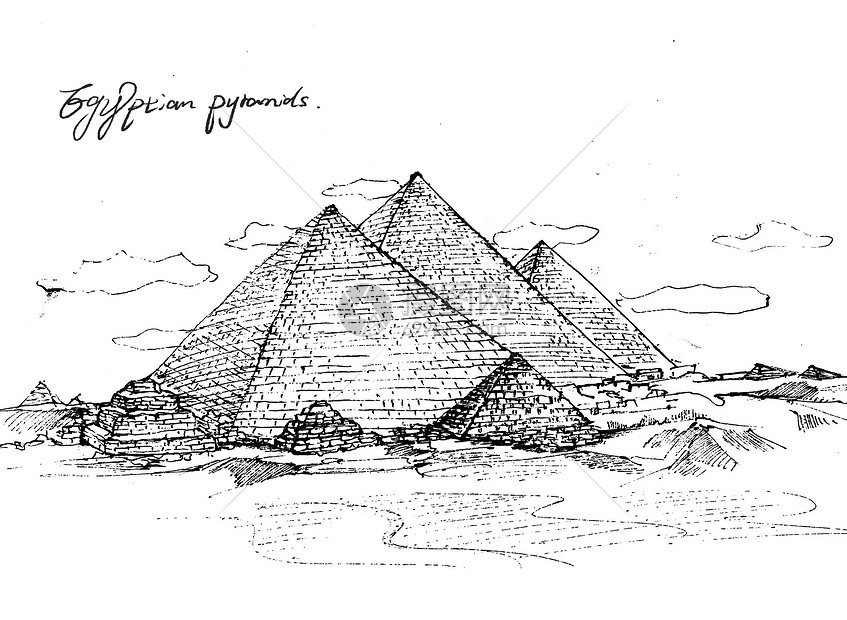 Egyptian pyramids.